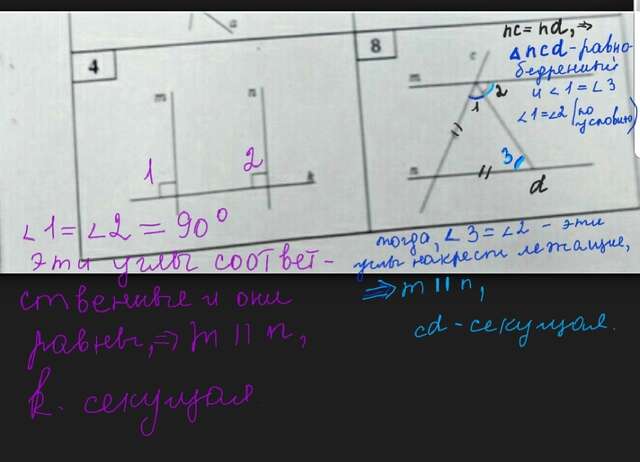 a
4
m
n
1
2
k
∠1=∠2=90°
эти углы соответ-
ственные и они
равны,⇒ m || n,
k - секущая
8
nc=nd,⇒
Δncd-равно-
бедренный
и ∠1=∠3
∠1=∠2 (по
условию)
c
m
2
1
3
n
d
тогда, ∠3=∠2 - эти
углы накрест лежащие,
⇒ m || n,
cd-секущая.